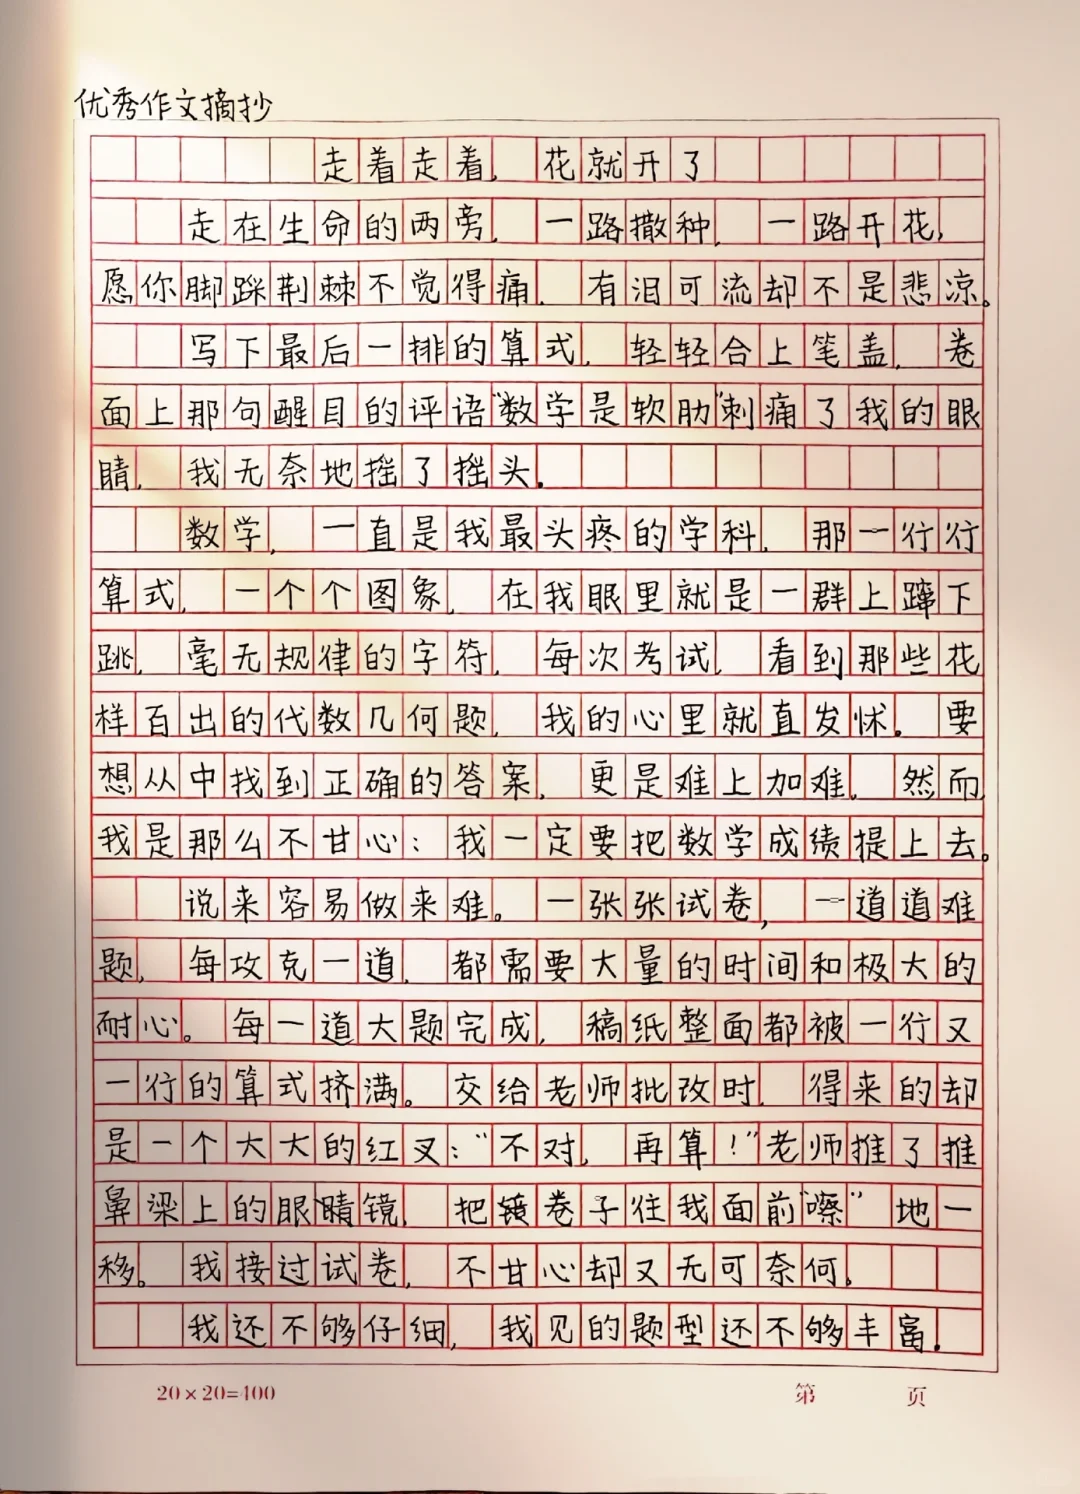 优秀作文摘抄
走着走着,花就开了
走在生命的两旁,一路撒种,一路开花,
愿你脚踩荆棘不觉得痛,有泪可流却不是悲凉。
写下最后一排的算式,轻轻合上笔盖,卷
面上那句醒目的评语“数学是软肋”刺痛了我的眼
睛,我无奈地摇了摇头.
数学,一直是我最头疼的学科,那一行行
算式,一个个图象,在我眼里就是一群上蹿下
跳,毫无规律的字符,每次考试,看到那些花
样百出的代数几何题,我的心里就直发怵。要
想从中找到正确的答案,更是难上加难,然而,
我是那么不甘心:我一定要把数学成绩提上去。
说来容易做来难。一张张试卷,一道道难
题,每攻克一道,都需要大量的时间和极大的
耐心。每一道大题完成,稿纸整面都被一行又
一行的算式挤满。交给老师批改时,得来的却
是一个大大的红叉:“不对,再算!”老师推了推
鼻梁上的眼睛镜,把卷子往我面前“嚓”地一
移。我接过试卷,不甘心却又无可奈何。
我还不够仔细,我见的题型还不够丰富.
20×20=400
第 页